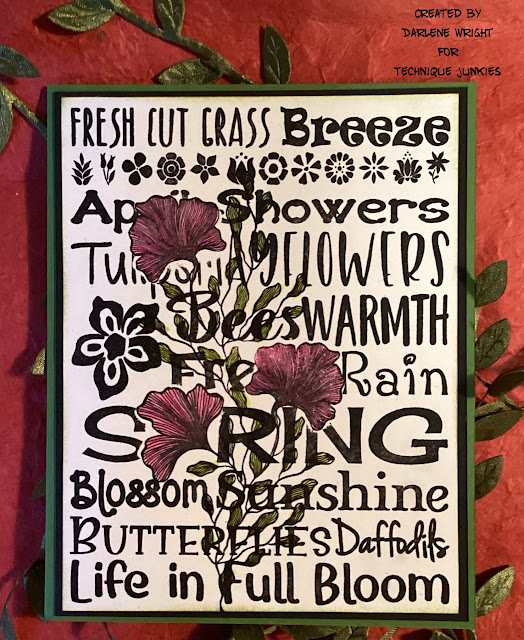 CREATED BY
DARLENE WRIGHT
FOR
TECHNIQUE JUNKIES
FRESH CUT GRASS Breeze
April Showers
FLOWERS
Bees WARMTH
Rain
SPRING
Blossom Sunshine
BUTTERFLIES Daffodils
Life in Full Bloom